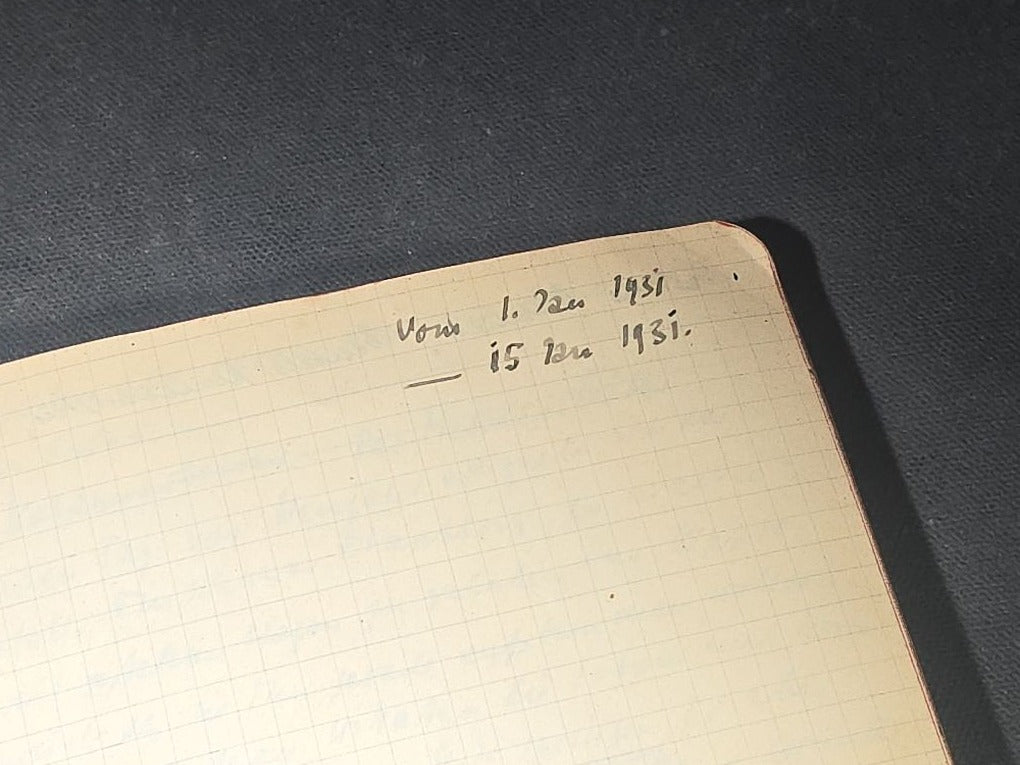 Vom 1. Jan 1931
— 15 Jan 1931.